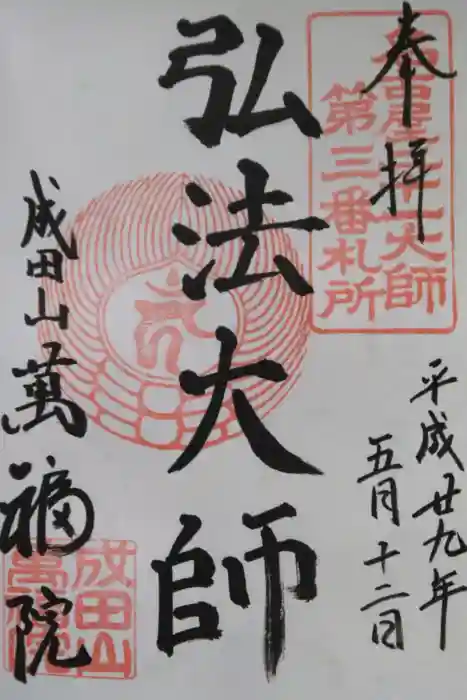 奉拝
名古屋二十一大師
第三番札所
平成廿九年
五月十二日
弘法大師
成田山萬福院
成田山
萬福院